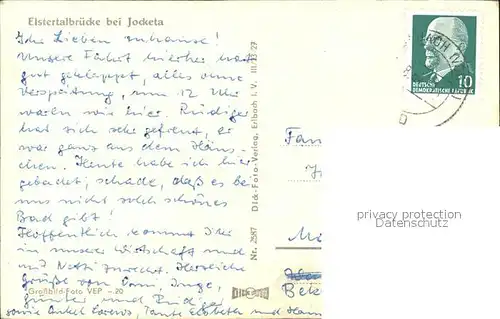 Elstertalbrücke bei Jocketa
Ihr Lieben zuhause!
Unsere Fahrt hierher hat
gut geklappt, alles ohne
Verspätung, um 12 Uhr
waren wir hier. Rüdiger
hat sich sehr gefreut, er
war ganz aus dem Häus-
chen. Heute habe ich hier
gebadet; schade, daß es bei
uns nicht solch schönes
Bad gibt!
Hoffentlich kommt Ihr
in unserer Wirtschaft und
mit Netti zurecht. Herzliche
Grüße von Inge,
Günter und Rüdiger
sowie Tante Elsbeth und
Großbild-Foto VEP -.20
Nr. 2587 Dick-Foto-Verlag, Erlbach i. V. III/13/27
DEUTSCHE
DEMOKRATISCHE REPUBLIK
10
Fam
privacy protection
Datenschutz